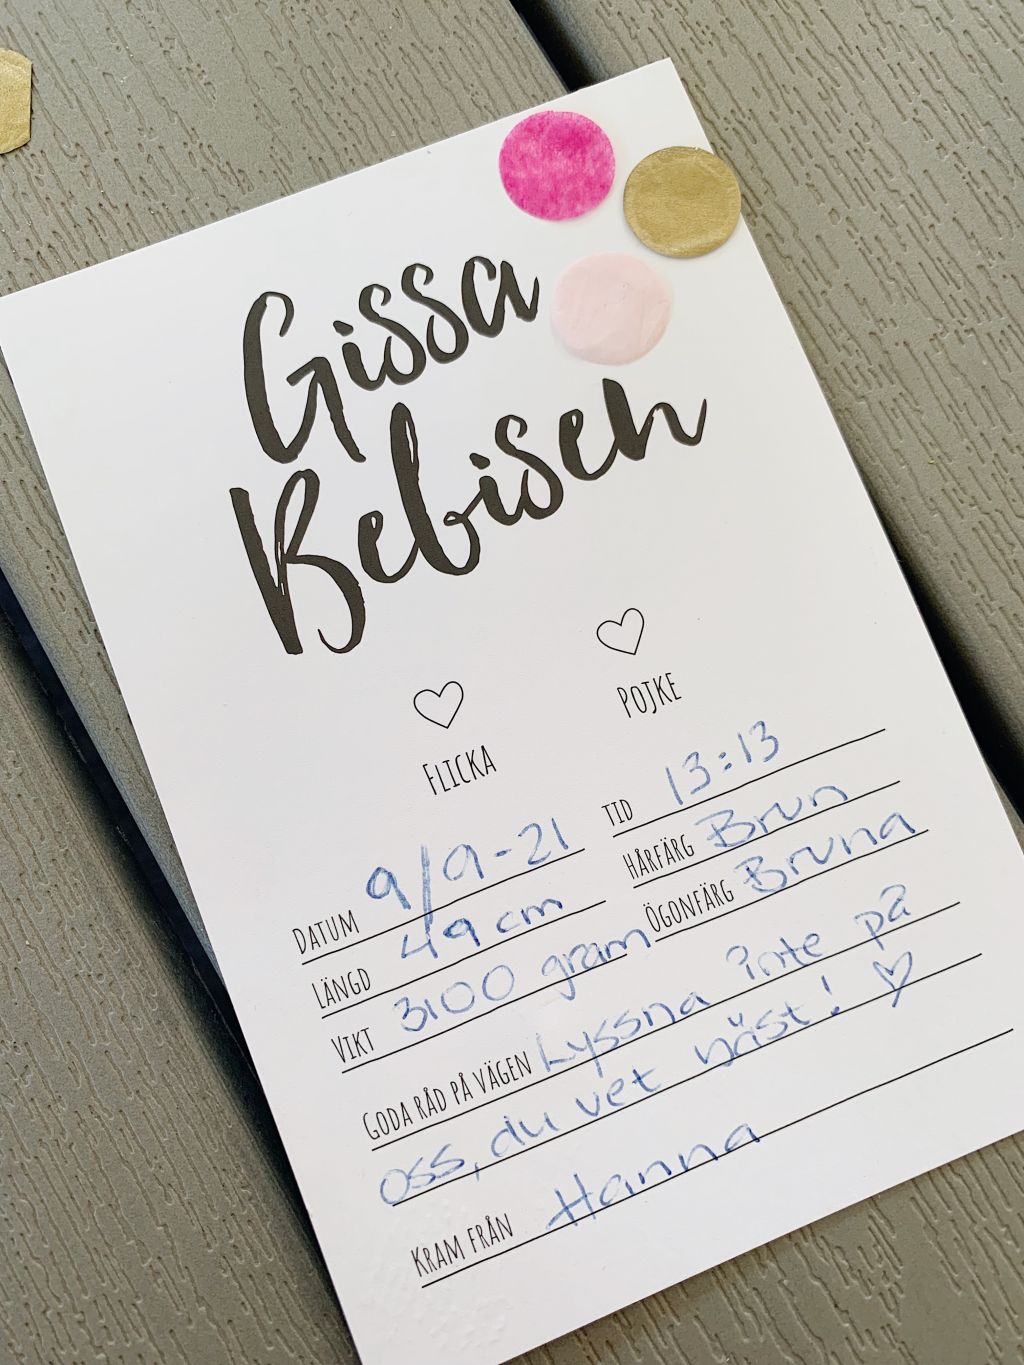 Gissa
Bebisen
FLICKA
POJKE
DATUM 9/9-21
TID 13:13
LÄNGD 49 cm
HÅRFÄRG Brun
VIKT 3100 gram
ÖGONFÄRG Bruna
GODA RÅD PÅ VÄGEN Lyssna inte på
oss, du vet bäst! ♡
KRAM FRÅN Hanna